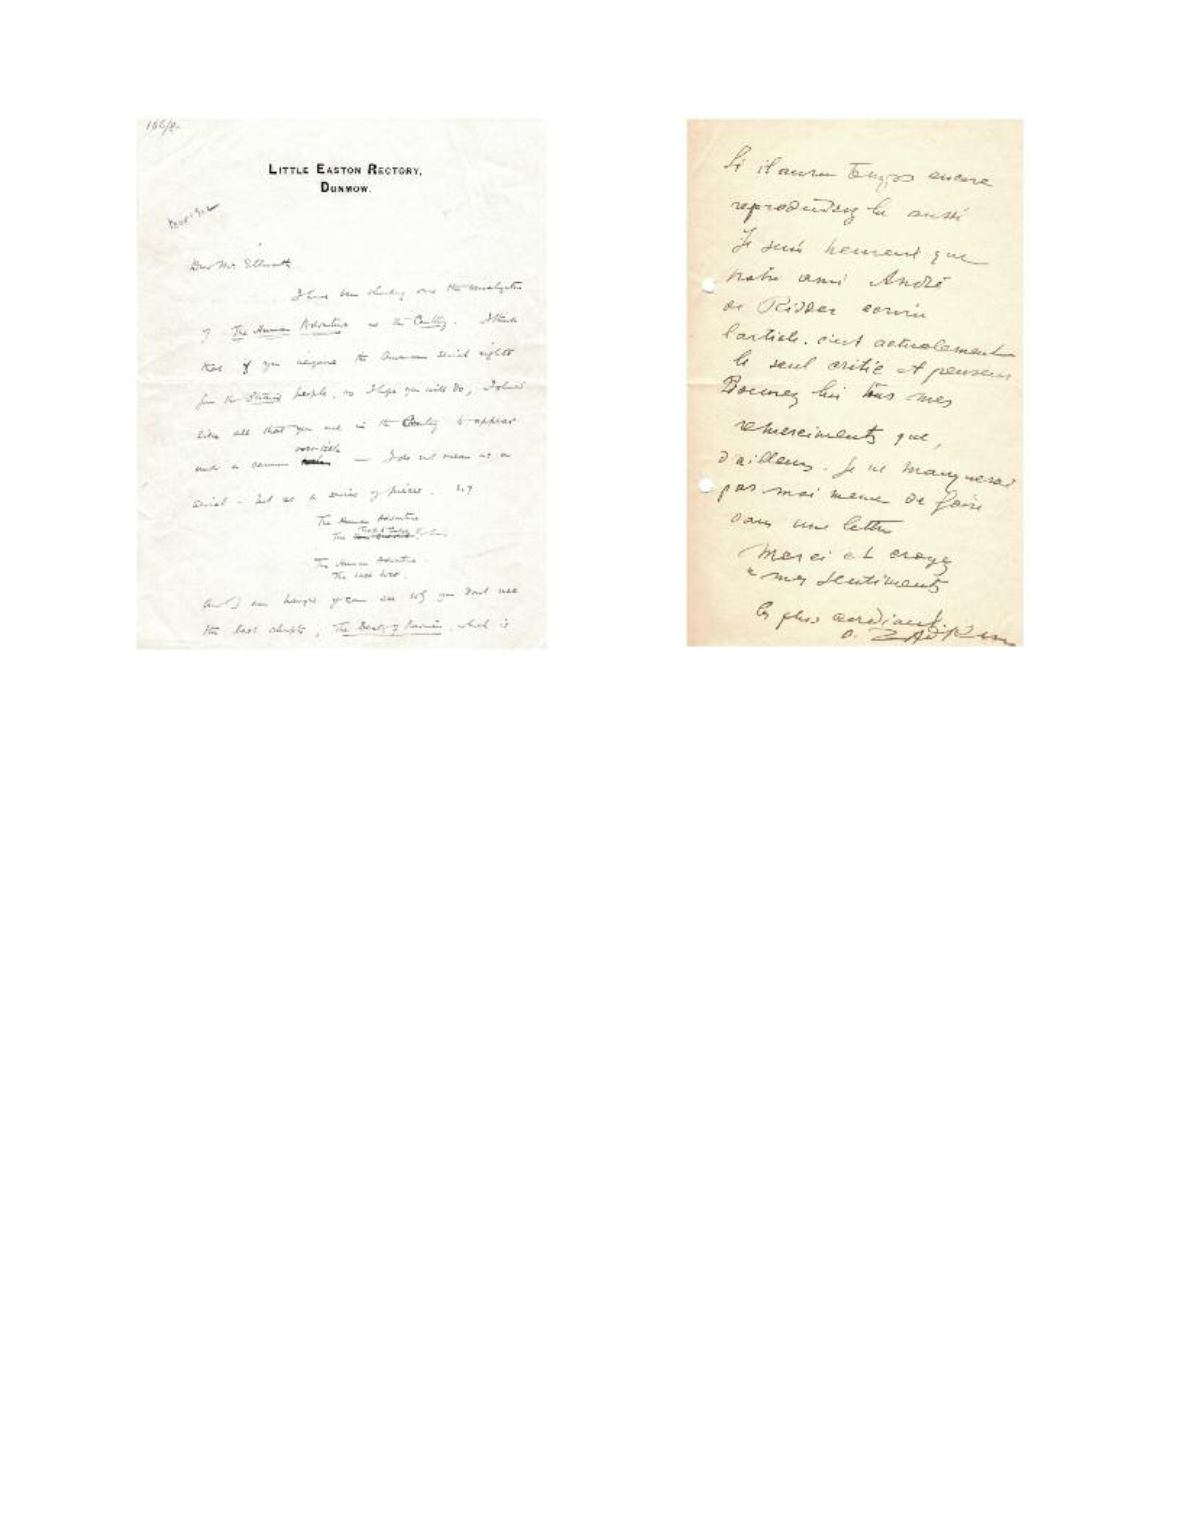 LITTLE EASTON RECTORY,
DUNMOW.
Dear Mr. Ellsworth
I have been thinking over the
of The Human Adventure in the Century. I think
that if you acquire the American serial rights
from the people, as I hope you will do, I should
like all that you use in the Century to appear
under a common over-title — I do not mean as a
serial – but as a series of pieces. E.g.
The Human Adventure
The
The Human Adventure.
The Last War.
And I am hanged if I can see why you don't use
the last chapter, The , which is
Si il aura temps encore
reproduisez le aussi
Je suis heureux que
notre ami André
de Ridder écrira
l'article. c'est actuelement
le seul critic et penseur
Donnez lui tous mes
remerciments que,
d'ailleurs. Je ne manquerai
pas moi meme de faire
dans une lettre
Merci et croyez
a mes sentiments
les plus cordiaux.
O. ZADKine